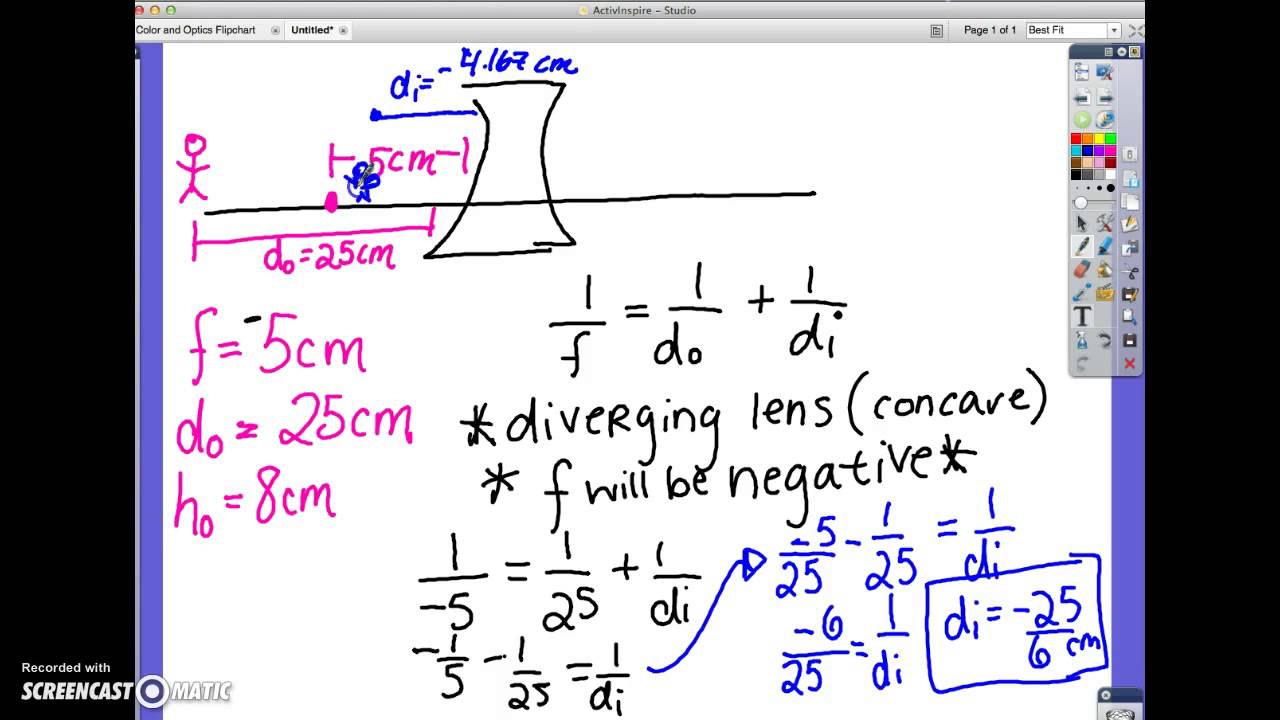 ActivInspire - Studio
Color and Optics Flipchart
Untitled*
Page 1 of 1
Best Fit
di = - 4.167 cm
5cm
do = 25cm
f = -5cm
do = 25cm
ho = 8cm
1/f = 1/do + 1/di
*diverging lens (concave)
* f will be negative*
1/-5 = 1/25 + 1/di
-1/5 - 1/25 = 1/di
-5/25 - 1/25 = 1/di
-6/25 = 1/di
di = -25/6 cm
T
Recorded with
SCREENCAST O MATIC